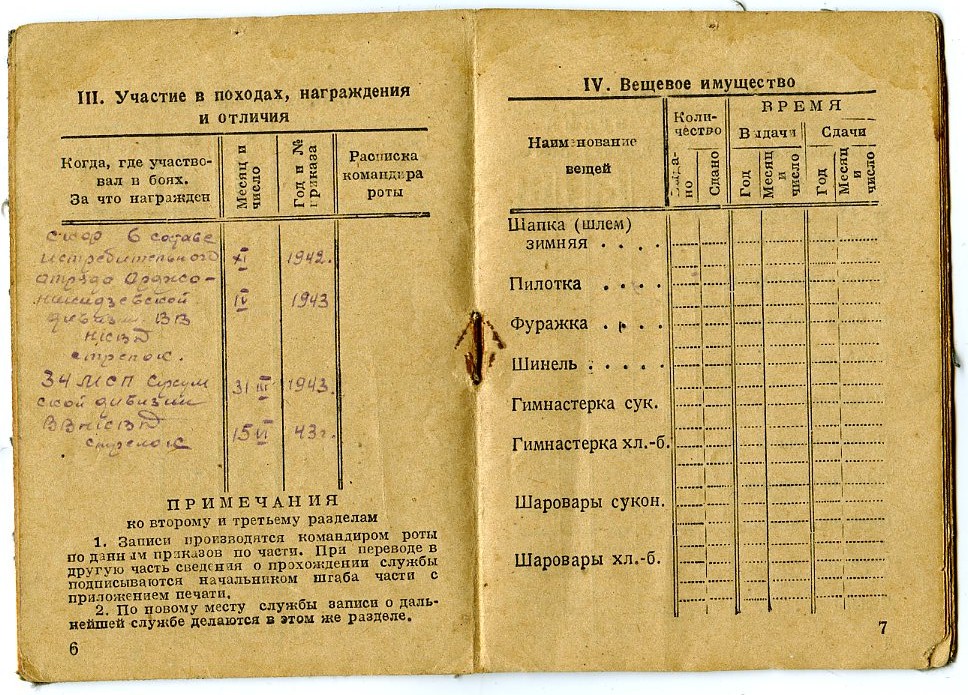 III. Участие в походах, награждения
и отличия
Когда, где участво-
вал в боях.
За что награжден
Месяц и
число
Год и №
приказа
Расписка
командира
роты
в составе
истребительного XI 1942.
отряда Орджо-
никидзевской IV 1943
дивизии ВВ
НКВД
стрелок.
34 МСП Сухум 31 III 1943.
ской дивизии
ВВ НКВД 15 VI 43г.
стрелок
ПРИМЕЧАНИЯ
ко второму и третьему разделам
1. Записи производятся командиром роты
по данным приказов по части. При переводе в
другую часть сведения о прохождении службы
подписываются начальником штаба части с
приложением печати.
2. По новому месту службы записи о даль-
нейшей службе делаются в этом же разделе.
6
IV. Вещевое имущество
Наименование
вещей
Коли-
чество
ВРЕМЯ
Выдачи
Сдачи
Выда-
но
Сдано
Год
Месяц
и
число
Год
Месяц
и
число
Шапка (шлем)
зимняя . . . .
Пилотка . . . .
Фуражка . . . .
Шинель . . . . .
Гимнастерка сук.
Гимнастерка хл.-б.
Шаровары сукон.
Шаровары хл.-б.
7